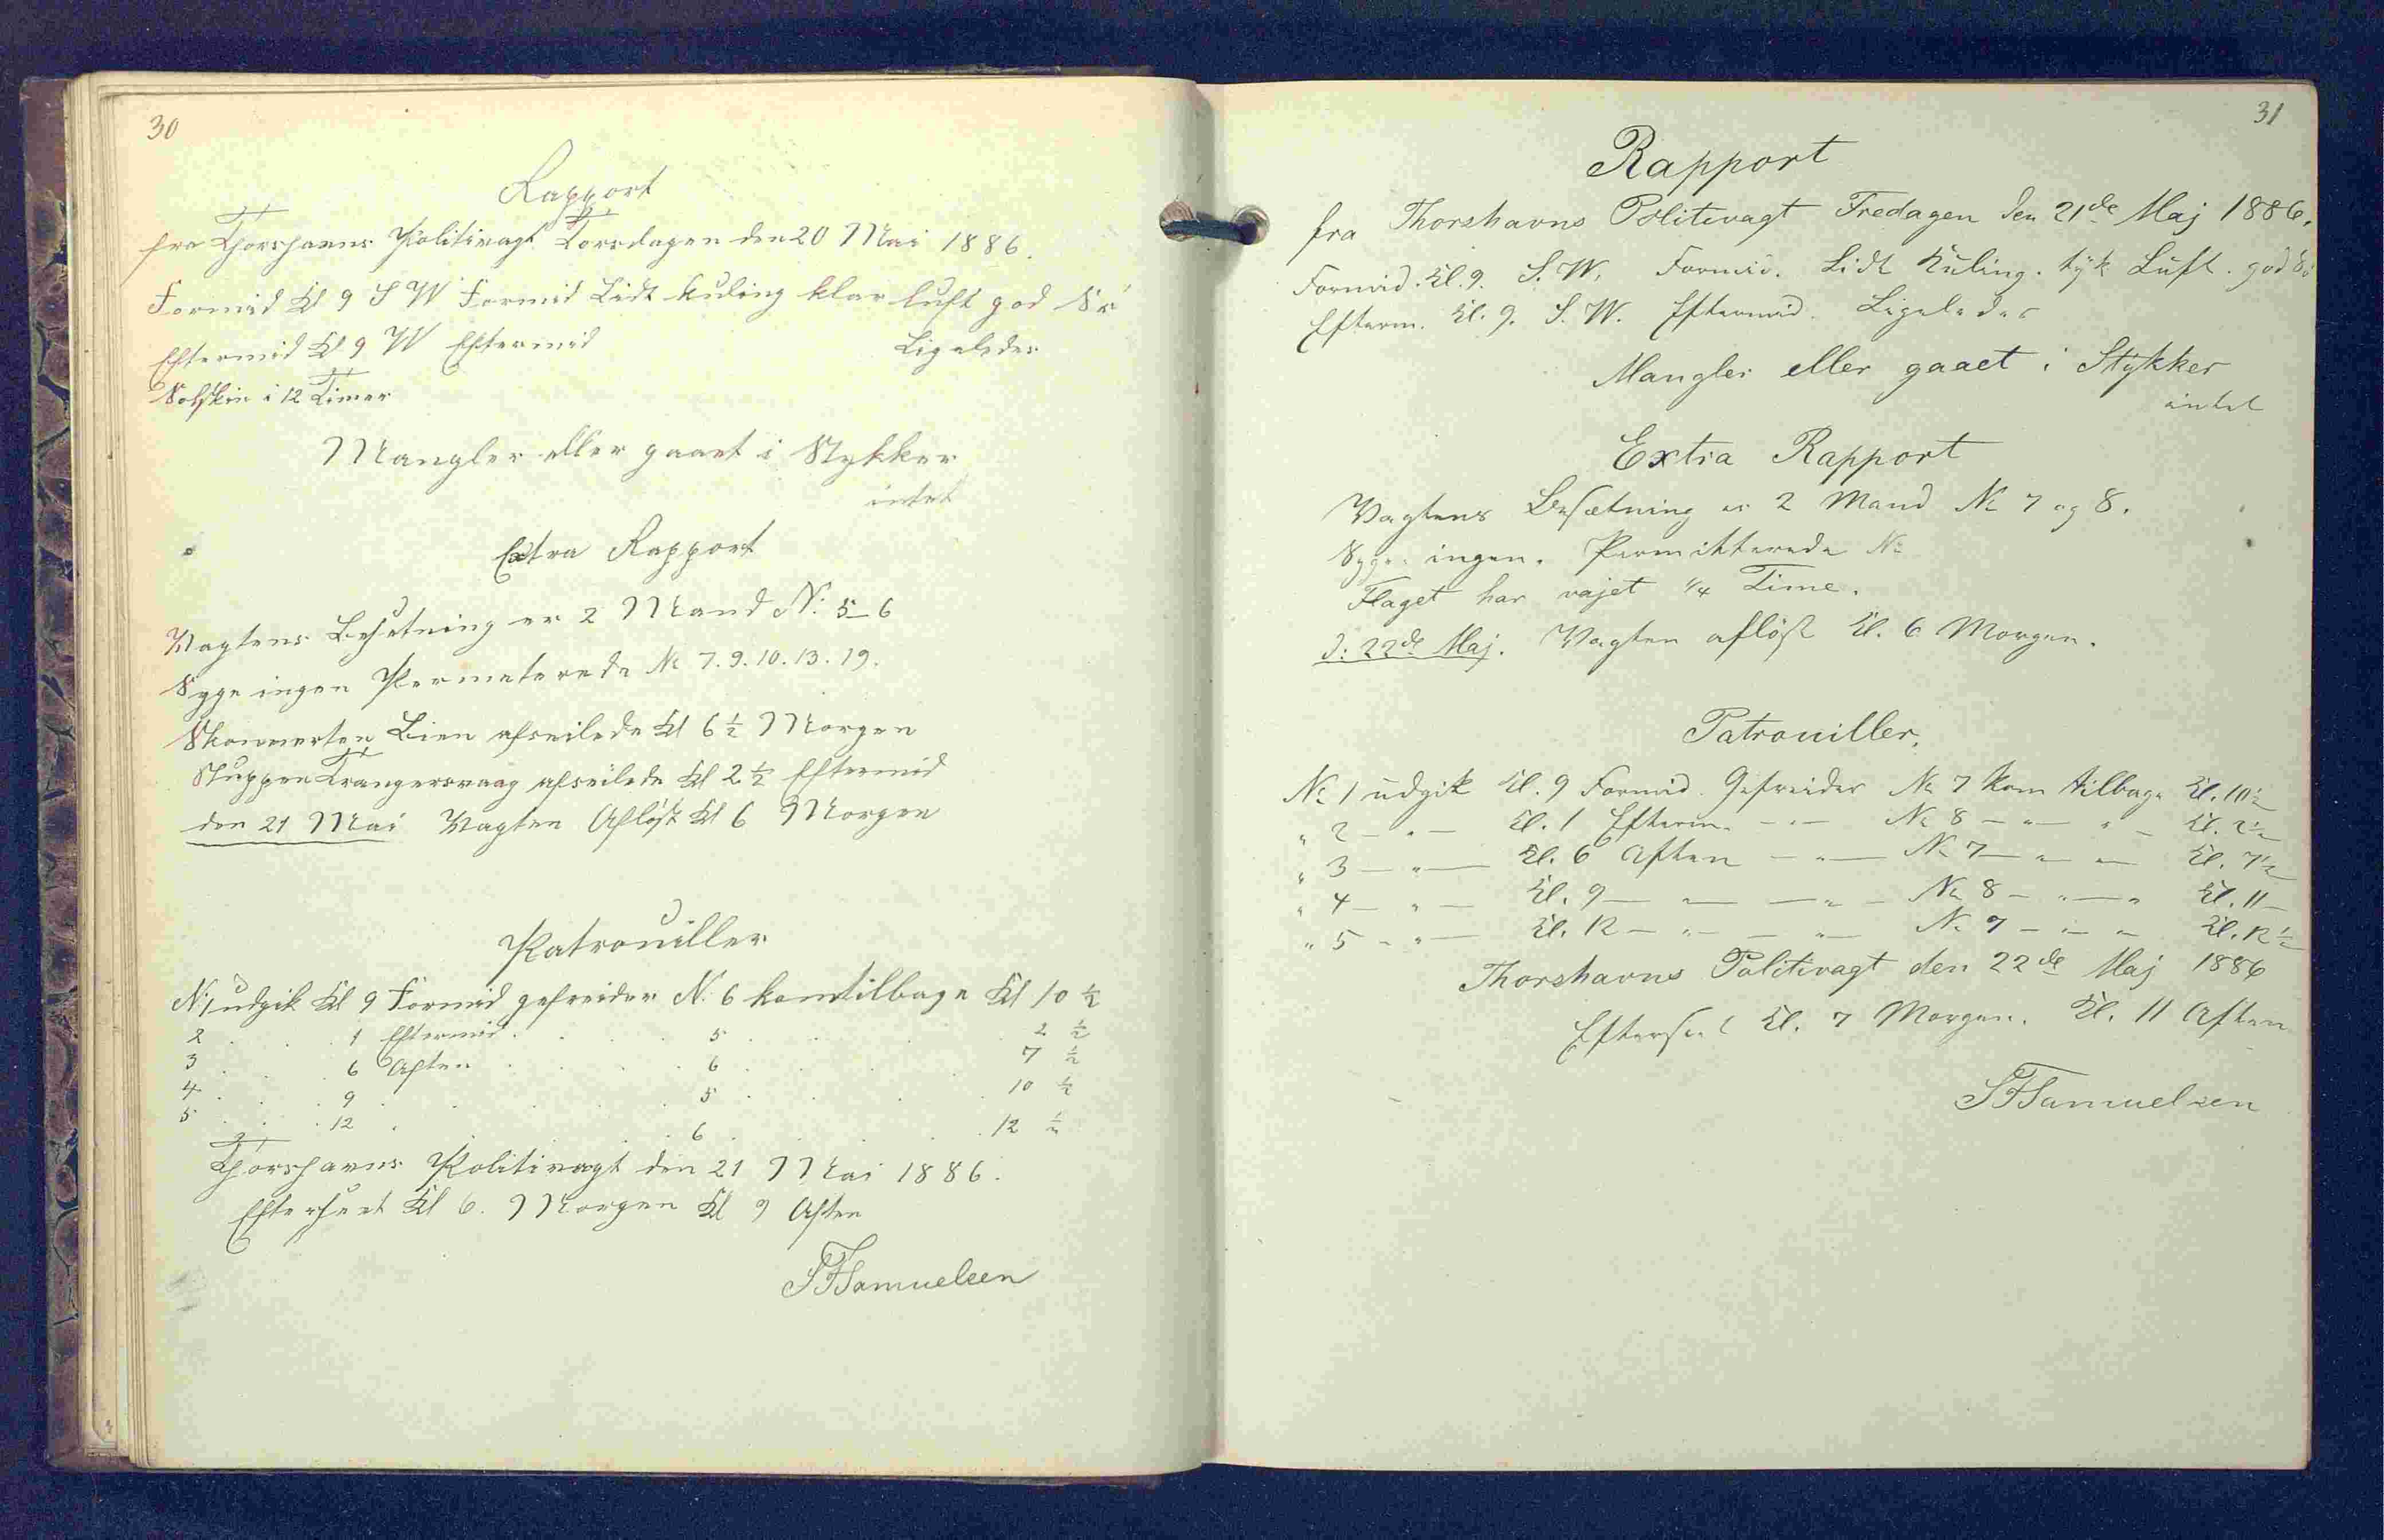 30
Rapport
fra Thorshavns Politivagt Torsdagen den 20 Mai 1886.
Formid Kl 9 S W Formid Lidt kuling klar luft god Sø
Eftermid Kl 9 W Eftermid Ligeledes
Solskin i 12 Timer
Mangler eller gaaet i Stykker
intet
Extra Rapport
Vagtens Besetning er 2 Mand N: 5-6
Syge ingen Permeterede No 7. 9. 10. 13. 19.
Skonnerten Bien afseilede Kl 6 ½ Morgen
Sluppen Trangersvaag afseilede Kl 2 ½ Eftermid
den 21 Mai Vagten Afløst Kl 6 Morgen
Patrouiller
N: 1 udgik Kl 9 Formid gefreider N. 6 kom tilbage Kl 10 ½
2 . . . 1 Eftermid . . . 5 . . . 2 ½
3 . . . 6 Aften . . . 6 . . . 7 ½
4 . . . 9 . . . 5 . . . 10 ½
5 . . . 12 . . . 6 . . . 12 ½
Thorshavns Politivagt den 21 Mai 1886.
Efterseet Kl 6. Morgen Kl 9 Aften
SFSamuelsen
31
Rapport
fra Thorshavns Politivagt Fredagen den 21de Maj 1886.
Formid. Kl. 9. S. W. Formid. Lidt Kuling. tyk Luft. god Sø
Efterm. Kl. 9. S. W. Eftermid. Ligeledes
Mangler eller gaaet i Stykker
intet
Extra Rapport
Vagtens Besætning er 2 Mand No 7 og 8.
Syge ingen. Permitterede No
Flaget har vajet 1/4 Time.
d: 22de Maj. Vagten afløst Kl. 6 Morgen.
Patrouiller.
No 1 udgik Kl. 9 Formid. Gefreider No 7 kom tilbage Kl. 10½
" 2 — " — Kl. 1 Efterm. — " — No 8 — " — " — Kl. 2½
" 3 — " — Kl. 6 Aften — " — No 7 — " — " — Kl. 7½
" 4 — " — Kl. 9 — " — " — No 8 — " — " Kl. 11 —
" 5 — " — Kl. 12 — " — " — No 7 — " — " Kl. 12½
Thorshavns Politivagt den 22de Maj 1886
Efterseet Kl. 7 Morgen. Kl. 11 Aften
SFSamuelsen